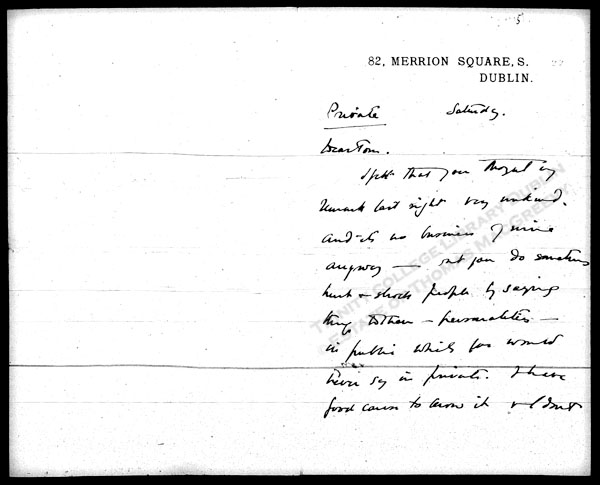 5
82, MERRION SQUARE, S.
DUBLIN.
Private Saturday.
Dear Tom.
I felt that you thought my
remark last night very unkind.
and its no business of mine
anyway — but you do sometimes
hurt & shock people by saying
things to them — personalities —
in public which you would
never say in private. I have
good cause to know it & I don't
TRINITY COLLEGE LIBRARY DUBLIN
ESTATE OF THOMAS MACGREEVY